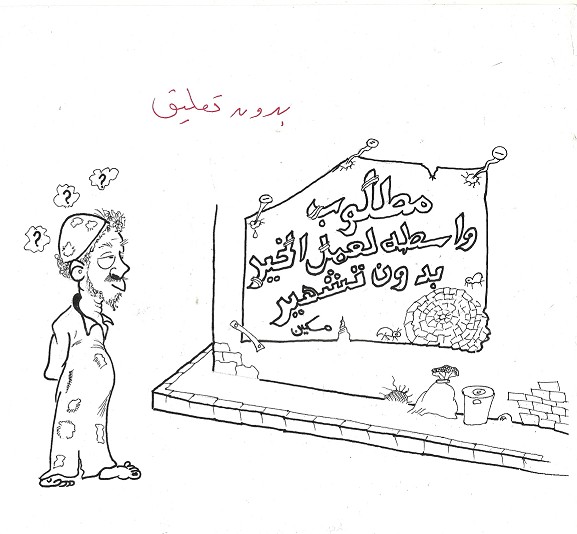 بدون تعليق
? ? ?
مطلوب
واسطه لعمل الخير
بدون تشهير
مسكين